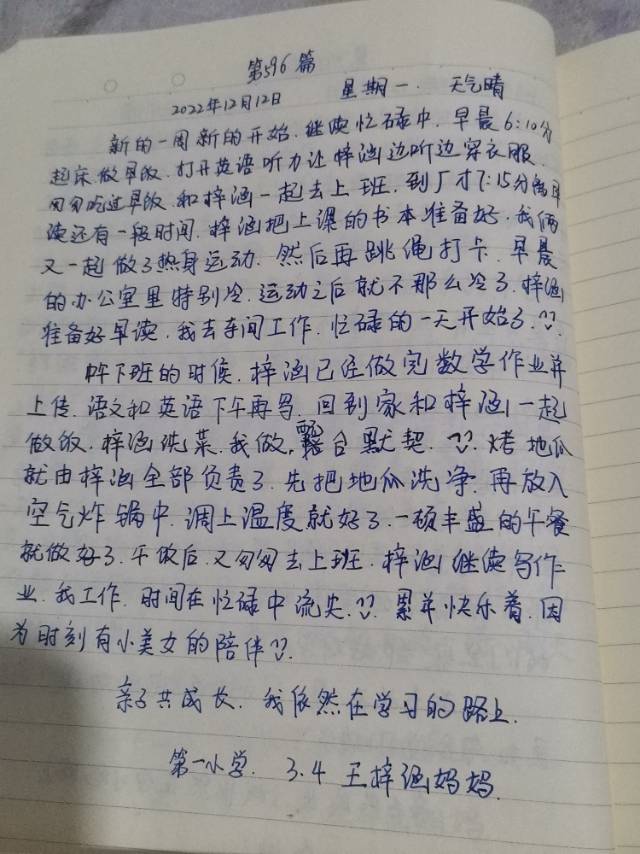 第596篇
2022年12月12日 星期一. 天气晴
新的一周新的开始. 继续忙碌中. 早晨6:10分
起床.做早饭. 打开英语听力让梓涵边听边穿衣服.
匆匆吃过早饭. 和梓涵一起去上班. 到厂才7:15分离早
读还有一段时间. 梓涵把上课的书本准备好. 我俩
又一起做了热身运动. 然后再跳绳打卡. 早晨
的办公室里特别冷. 运动之后就不那么冷了. 梓涵
准备好早读. 我去车间工作. 忙碌的一天开始了.
中午下班的时候. 梓涵已经做完数学作业并
上传. 语文和英语下午再写. 回到家和梓涵一起
做饭. 梓涵洗菜. 我做. 配合默契. 烤地瓜
就由梓涵全部负责了. 先把地瓜洗净. 再放入
空气炸锅中. 调上温度就好了. 一顿丰盛的午餐
就做好了. 午饭后. 又匆匆去上班. 梓涵继续写作
业. 我工作. 时间在忙碌中流失. 累并快乐着. 因
为时刻有小美女的陪伴
亲子共成长. 我依然在学习的路上.
第一小学. 3.4 王梓涵妈妈.